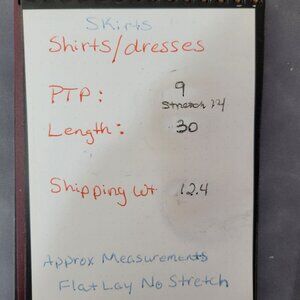 Skirts
Shirts/dresses
PTP: 9
Stretch 14
Length: 30
Shipping Wt 12.4
Approx Measurements
Flat Lay No Stretch